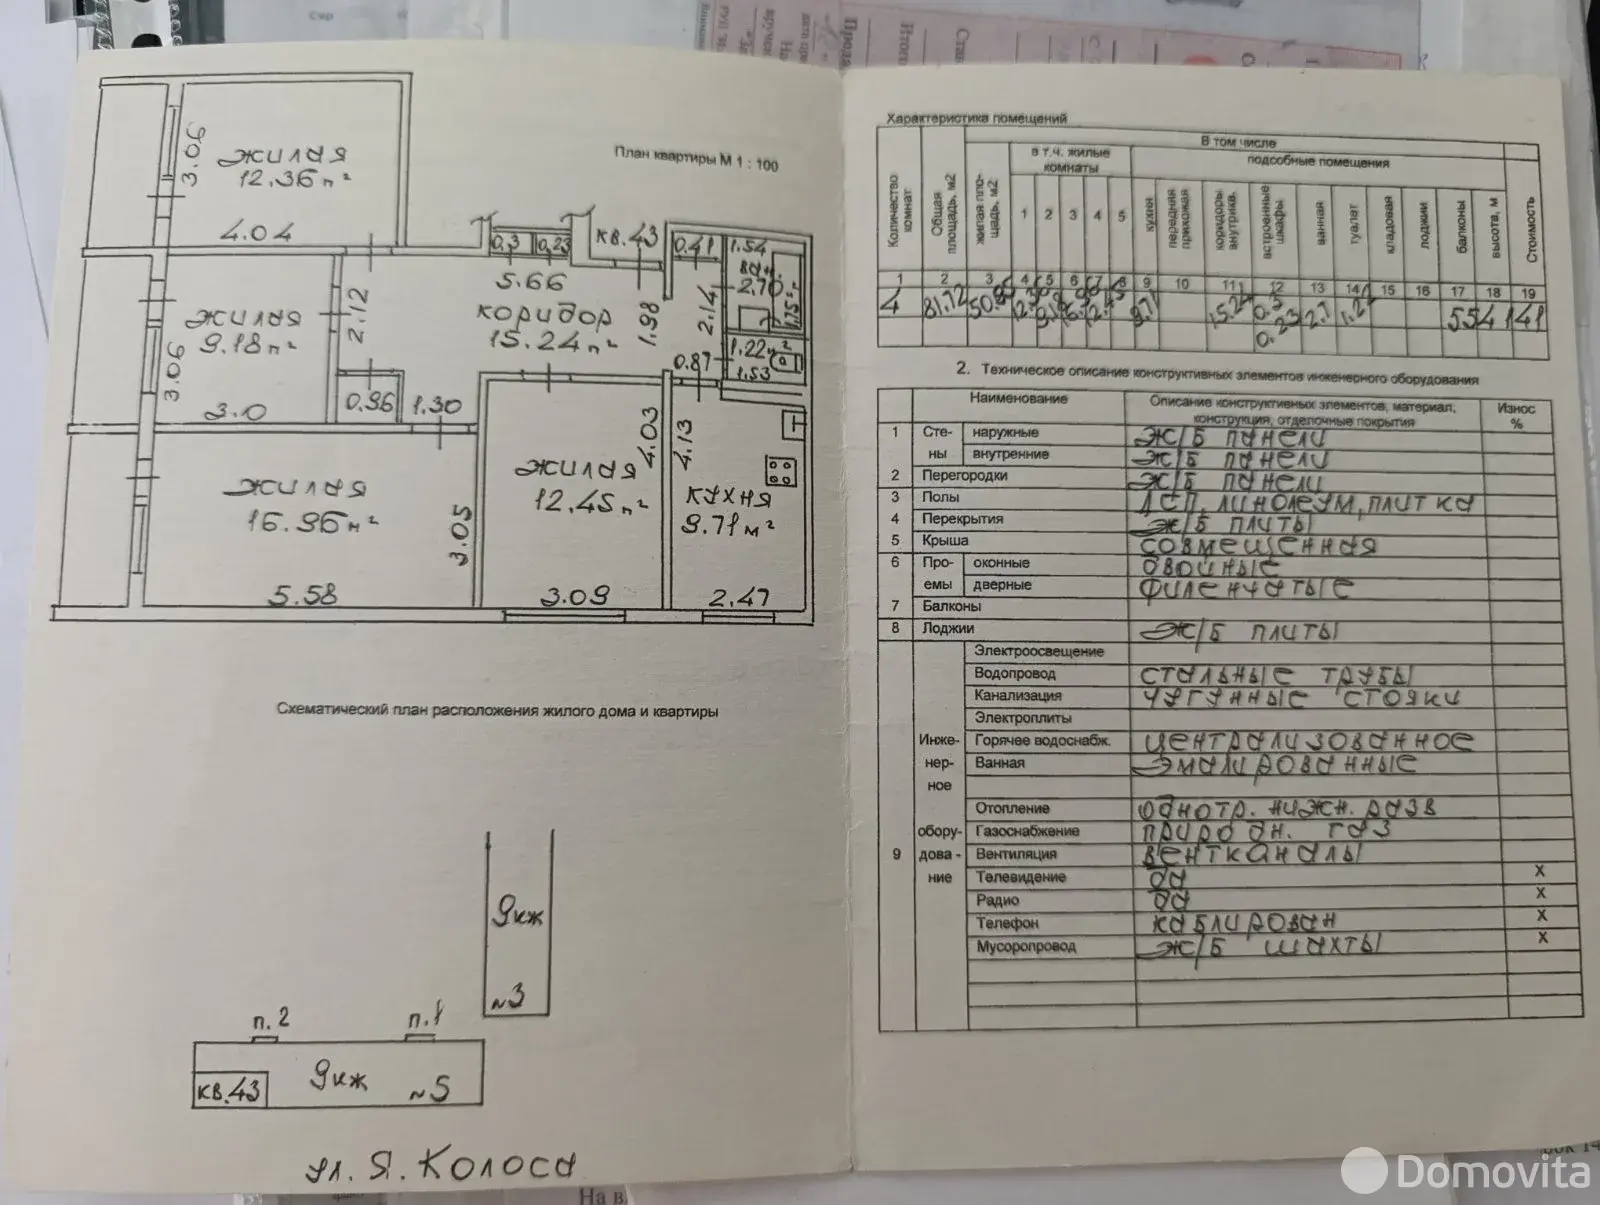 План квартиры М 1 : 100
жилая
12.36 м²
3.06
4.04
кв.43
0.3
0.23
0.41
1.54
5.66
ван.
2.70
1.75
жилая
9.18 м²
2.12
коридор
15.24 м²
1.98
2.14
3.06
3.0
0.96
1.30
0.87
1.22 м²
1.53
жилая
16.96 м²
3.05
5.58
жилая
12.45 м²
4.03
3.09
4.13
кухня
9.71 м²
2.47
Схематический план расположения жилого дома и квартиры
9кж
№3
п.2
п.1
кв.43
9кж
№5
ул. Я. Колоса
Характеристика помещений
Количество комнат
Общая площадь, м2
жилая площадь, м2
В том числе
в т.ч. жилые комнаты
подсобные помещения
1 2 3 4 5
кухня
передняя прихожая
коридоры внутрикв.
встроенные шкафы
ванная
туалет
кладовая
лоджии
балконы
высота, м
Стоимость
1 2 3 4 5 6 7 8 9 10 11 12 13 14 15 16 17 18 19
4 81.72 50.95 9.71 15.24 0.3 2.7 1.22
0.23
2. Техническое описание конструктивных элементов инженерного оборудования
Наименование Описание конструктивных элементов, материал, конструкция, отделочные покрытия Износ %
1 Стены наружные ж/б панели
внутренние ж/б панели
2 Перегородки ж/б панели
3 Полы ДСП, линолеум, плитка
4 Перекрытия ж/б плиты
5 Крыша совмещенная
6 Проемы оконные двойные
дверные филенчатые
7 Балконы
8 Лоджии ж/б плиты
9 Инженерное оборудование
Электроосвещение
Водопровод стальные трубы
Канализация чугунные стояки
Электроплиты
Горячее водоснабж. централизованное
Ванная эмалированные
Отопление однотр. нижн. разв
Газоснабжение природн. газ
Вентиляция вентканалы
Телевидение да X
Радио да X
Телефон каблирован X
Мусоропровод ж/б шахты X
Domovita